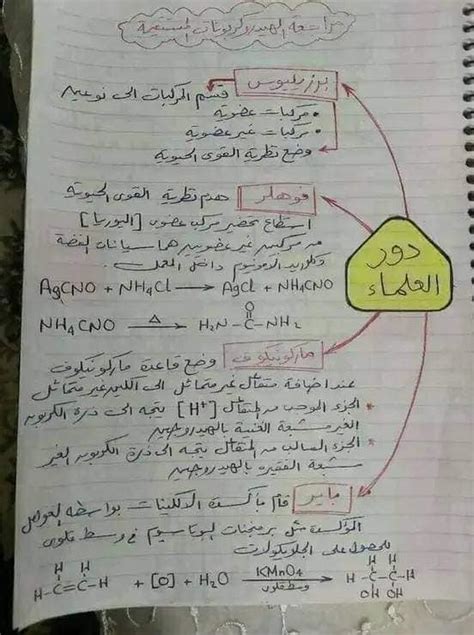 مراجعة الهيدروكربونات المشبعة
برزيليوس
قسم المركبات الى نوعين
• مركبات عضوية
• مركبات غير عضوية
وضع نظرية القوى الحيوية
دور
العلماء
فوهلر
هدم نظرية القوى الحيوية
استطاع تحضير مركب عضوى [اليوريا]
من مركبين غير عضويين هما سيانات الفضة
وكلوريد الامونيوم داخل المعمل
AgCNO + NH4Cl → AgCl + NH4CNO
NH4CNO Δ→ H2N - C - NH2
O
ماركونيكوف
وضع قاعدة ماركونيكوف
عند اضافة متفاعل غير متماثل الى الكين غير متماثل
الجزء الموجب من المتفاعل [H+] يتجه الى ذرة الكربون
الغير مشبعة الغنية بالهيدروجين
الجزء السالب من المتفاعل يتجه الى ذرة الكربون الغير
مشبعة الفقيرة بالهيدروجين
باير
قام بأكسدة الالكينات بواسطة العوامل
المؤكسدة مثل برمنجنات البوتاسيوم فى وسط قلوى
للحصول على الجليكولات
H H
H-C=C-H + [O] + H2O KMnO4→ H-C-C-H
وسط قلوى
OH OH